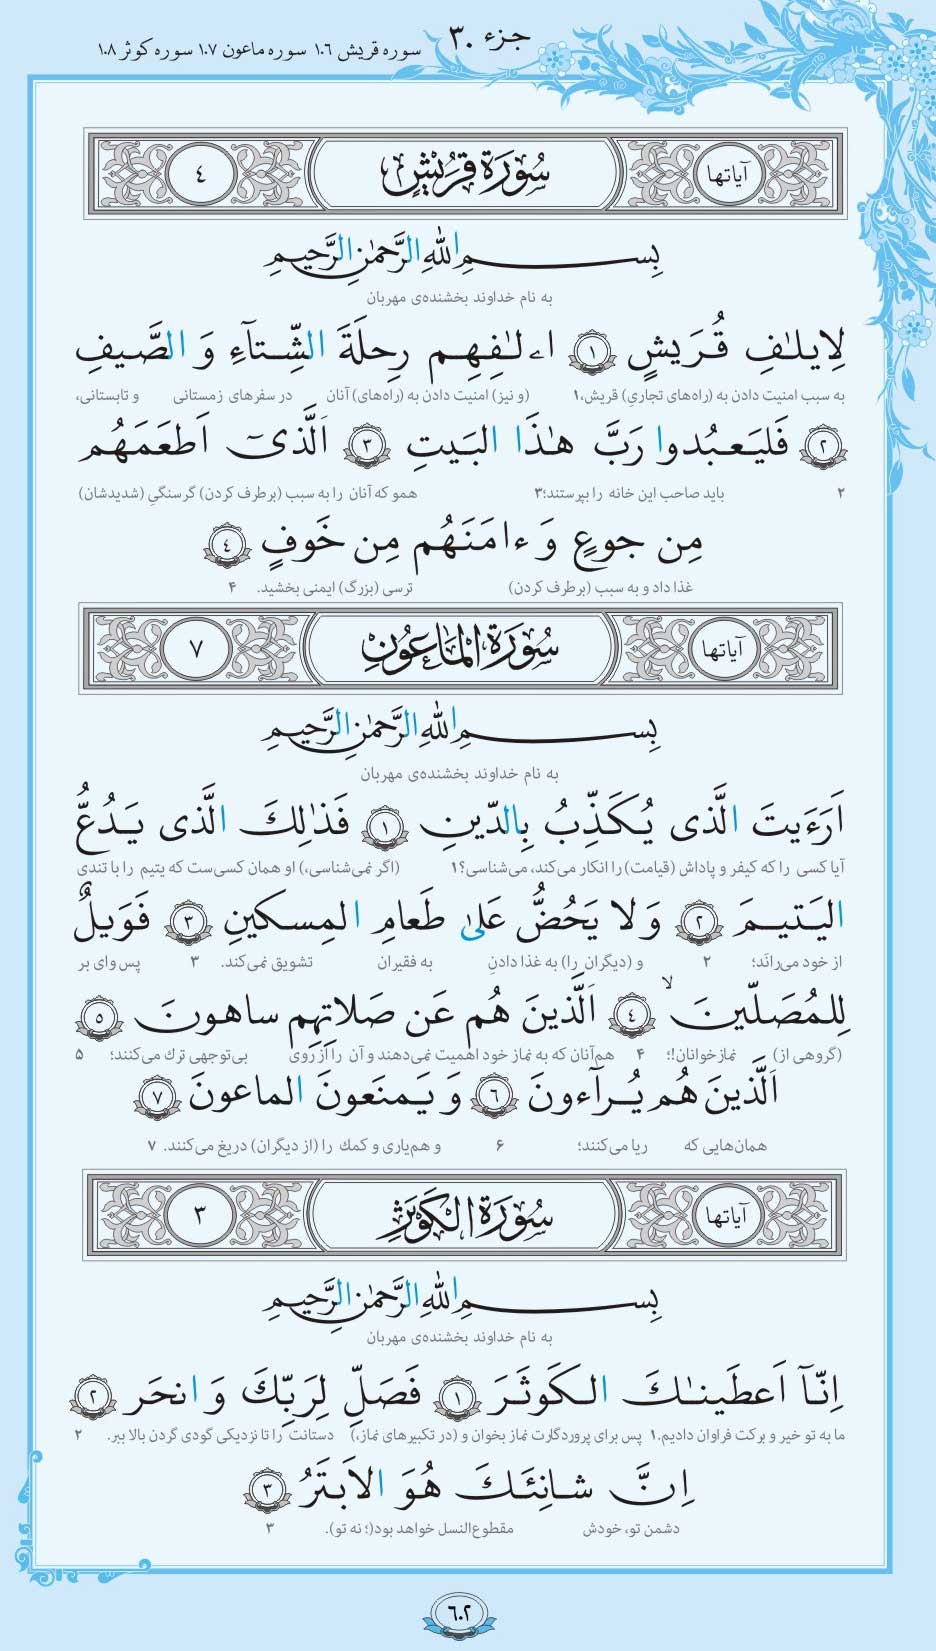 جزء ۳۰ سوره قریش ۱۰۶ سوره ماعون ۱۰۷ سوره کوثر ۱۰۸
آیاتها سُورَةُ قُرَيْشٍ ٤
بِسـمِ اللّٰهِ الرَّحمٰنِ الرَّحيمِ
به نام خداوند بخشنده‌ی مهربان
لِايلٰفِ قُرَيشٍ ١ اۦلٰفِهِم رِحلَةَ الشِّتآءِ وَ الصَّيفِ
به سبب امنیت دادن به (راه‌های تجاریِ) قریش،۱ (و نیز) امنیت دادن به (راه‌های) آنان در سفرهای زمستانی و تابستانی،
٢ فَليَعبُدوا رَبَّ هٰذَا البَيتِ ٣ اَلَّذىٓ اَطعَمَهُم
۲ باید صاحب این خانه را بپرستند؛۳ همو که آنان را به سبب (برطرف کردن) گرسنگیِ (شدیدشان)
مِن جوعٍ وَ ءامَنَهُم مِن خَوفٍ ٤
غذا داد و به سبب (برطرف کردن) ترسی (بزرگ) ایمنی بخشید. ۴
آیاتها سُورَةُ الْمَاعُونِ ٧
بِسـمِ اللّٰهِ الرَّحمٰنِ الرَّحيمِ
به نام خداوند بخشنده‌ی مهربان
اَرَءَيتَ الَّذى يُكَذِّبُ بِالدّينِ ١ فَذٰلِكَ الَّذى يَدُعُّ
آیا کسی را که کیفر و پاداش (قیامت) را انکار می‌کند، می‌شناسی؟۱ (اگر نمی‌شناسی،) او همان کسی‌ست که یتیم را با تندی
اليَتيمَ ٢ وَ لا يَحُضُّ عَلىٰ طَعامِ المِسكينِ ٣ فَوَيلٌ
از خود می‌رانَد؛ ۲ و (دیگران را) به غذا دادنِ به فقیران تشویق نمی‌کند. ۳ پس وای بر
لِلمُصَلّينَ ۙ ٤ اَلَّذينَ هُم عَن صَلاتِهِم ساهونَ ٥
(گروهی از) نمازخوانان!؛ ۴ هم‌آنان که به نماز خود اهمیت نمی‌دهند و آن را از روی بی‌توجهی ترك می‌کنند؛ ۵
اَلَّذينَ هُم يُرآءونَ ٦ وَ يَمنَعونَ الماعونَ ٧
همان‌هایی که ریا می‌کنند؛ ۶ و هم‌یاری و کمك را (از دیگران) دریغ می‌کنند. ۷
آیاتها سُورَةُ الْكَوْثَرِ ٣
بِسـمِ اللّٰهِ الرَّحمٰنِ الرَّحيمِ
به نام خداوند بخشنده‌ی مهربان
اِنّآ اَعطَينٰكَ الكَوثَرَ ١ فَصَلِّ لِرَبِّكَ وَ انحَر ٢
ما به تو خیر و برکت فراوان دادیم.۱ پس برای پروردگارت نماز بخوان و (در تکبیرهای نماز،) دستانت را تا نزدیکی گودی گردن بالا ببر. ۲
اِنَّ شانِئَكَ هُوَ الاَبتَرُ ٣
دشمن تو، خودش مقطوع‌النسل خواهد بود(؛ نه تو). ۳
۶۰۲